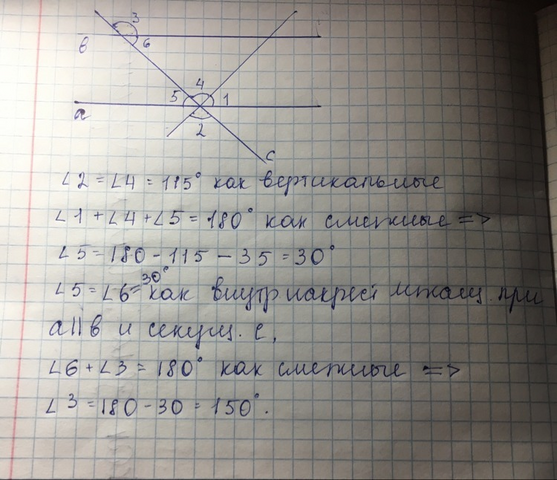 3
в 6
4
а 5 1
2
с
∠2 = ∠4 = 115° как вертикальные
∠1 + ∠4 + ∠5 = 180° как смежные =>
∠5 = 180 - 115 - 35 = 30°
∠5 = ∠6 = 30° как внутр накрест лежащ при
a || в и секущ. с.
∠6 + ∠3 = 180° как смежные =>
∠3 = 180 - 30 = 150°.